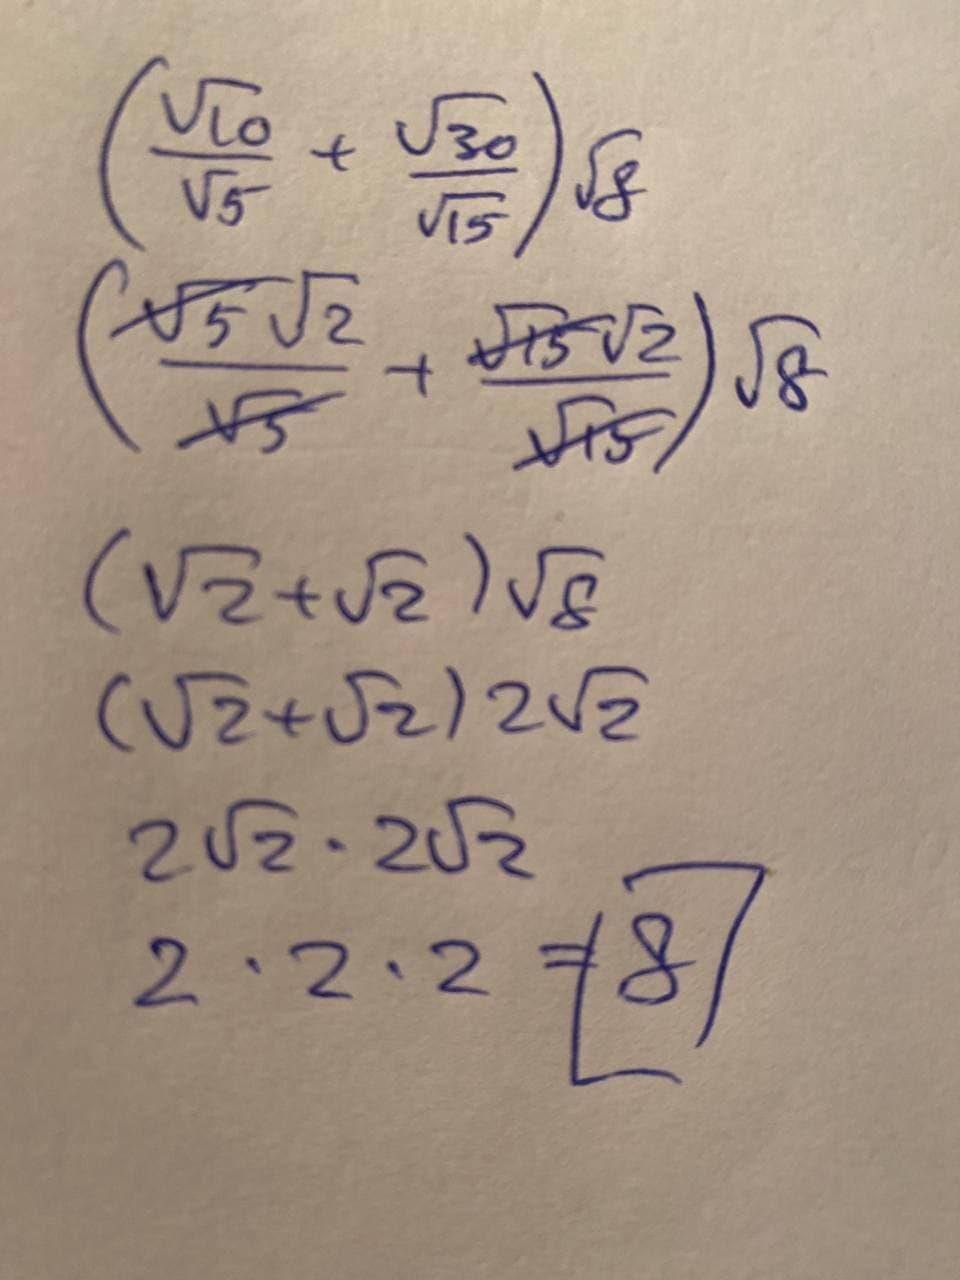 (√10/√5 + √30/√15)√8
(√5√2/√5 + √15√2/√15)√8
(√2+√2)√8
(√2+√2)2√2
2√2·2√2
2·2·2=8